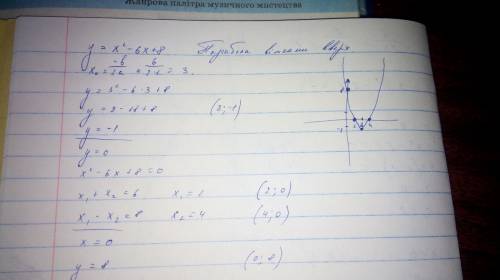 Жанрова палітра музичного мистецтва
y = x² - 6x + 8. Парабола вітками вверх.
x₀ = -b/2a = 6/2·1 = 3.
y = 3² - 6·3 + 8
y = 9 - 18 + 8 (3; -1)
y = -1
y = 0
x² - 6x + 8 = 0
x₁ + x₂ = 6 x₁ = 2 (2; 0)
x₁ · x₂ = 8 x₂ = 4 (4; 0)
x = 0
y = 8 (0; 8)